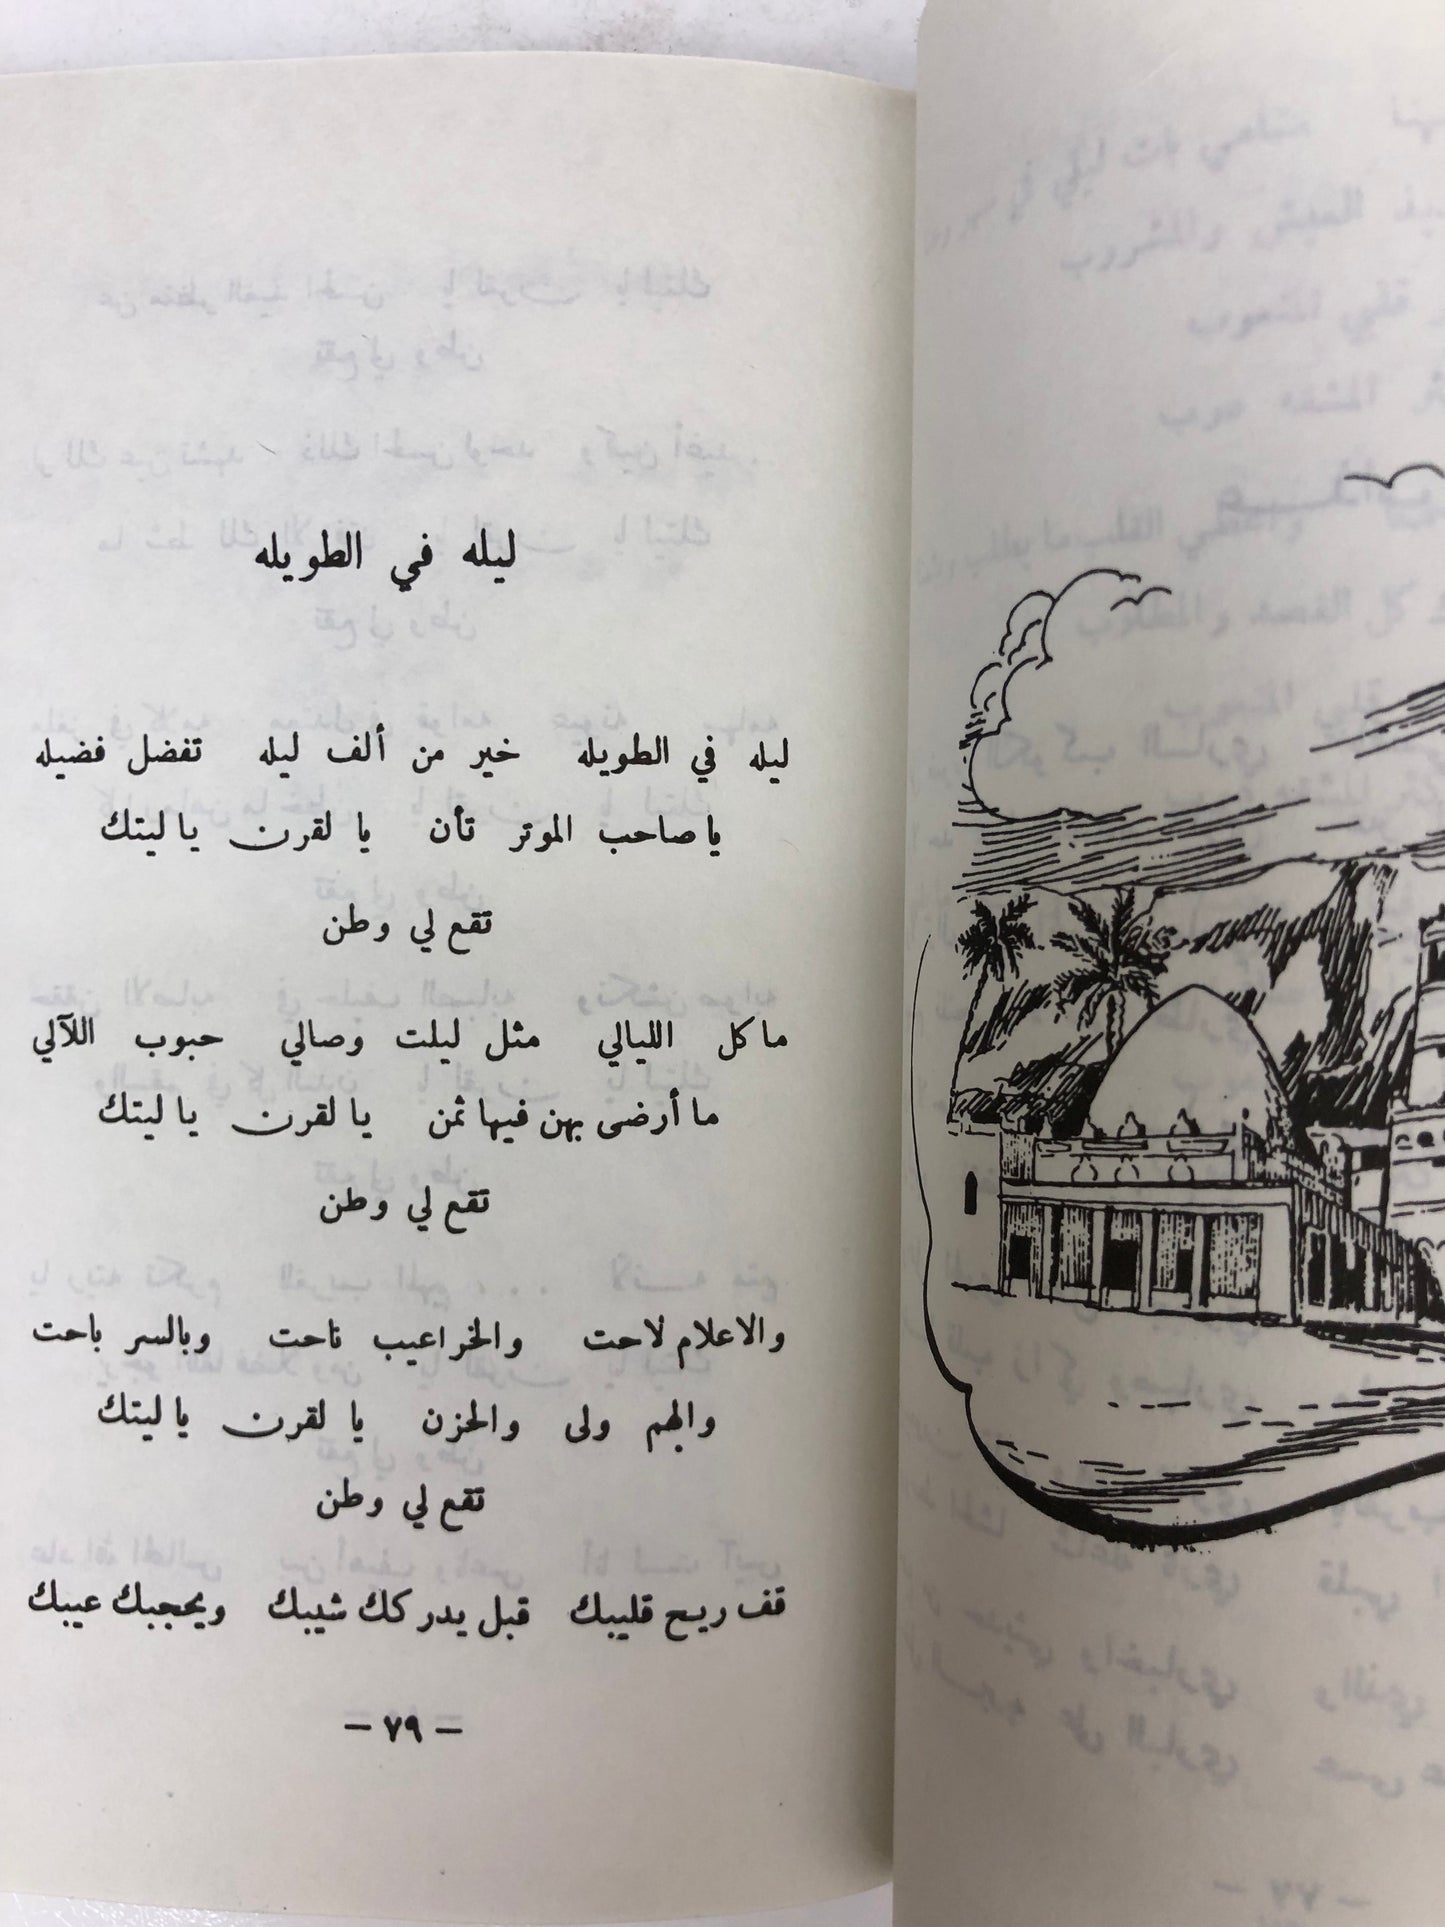 ليله في الطويله
ليله في الطويله خير من ألف ليله تفضل فضيله
يا صاحب الموتر تأن يا لقرن يا ليتك
تقع لي وطن
ما كل الليالي مثل ليلت وصالي حبوب اللآلي
ما أرضى بهن فيها ثمن يا لقرن يا ليتك
تقع لي وطن
والاعلام لاحت والخراعيب ناحت وبالسر باحت
والهم ولى والحزن يا لقرن يا ليتك
تقع لي وطن
قف ريح قليبك قبل يدركك شيبك ويحجبك عيبك
– ٧٩ –